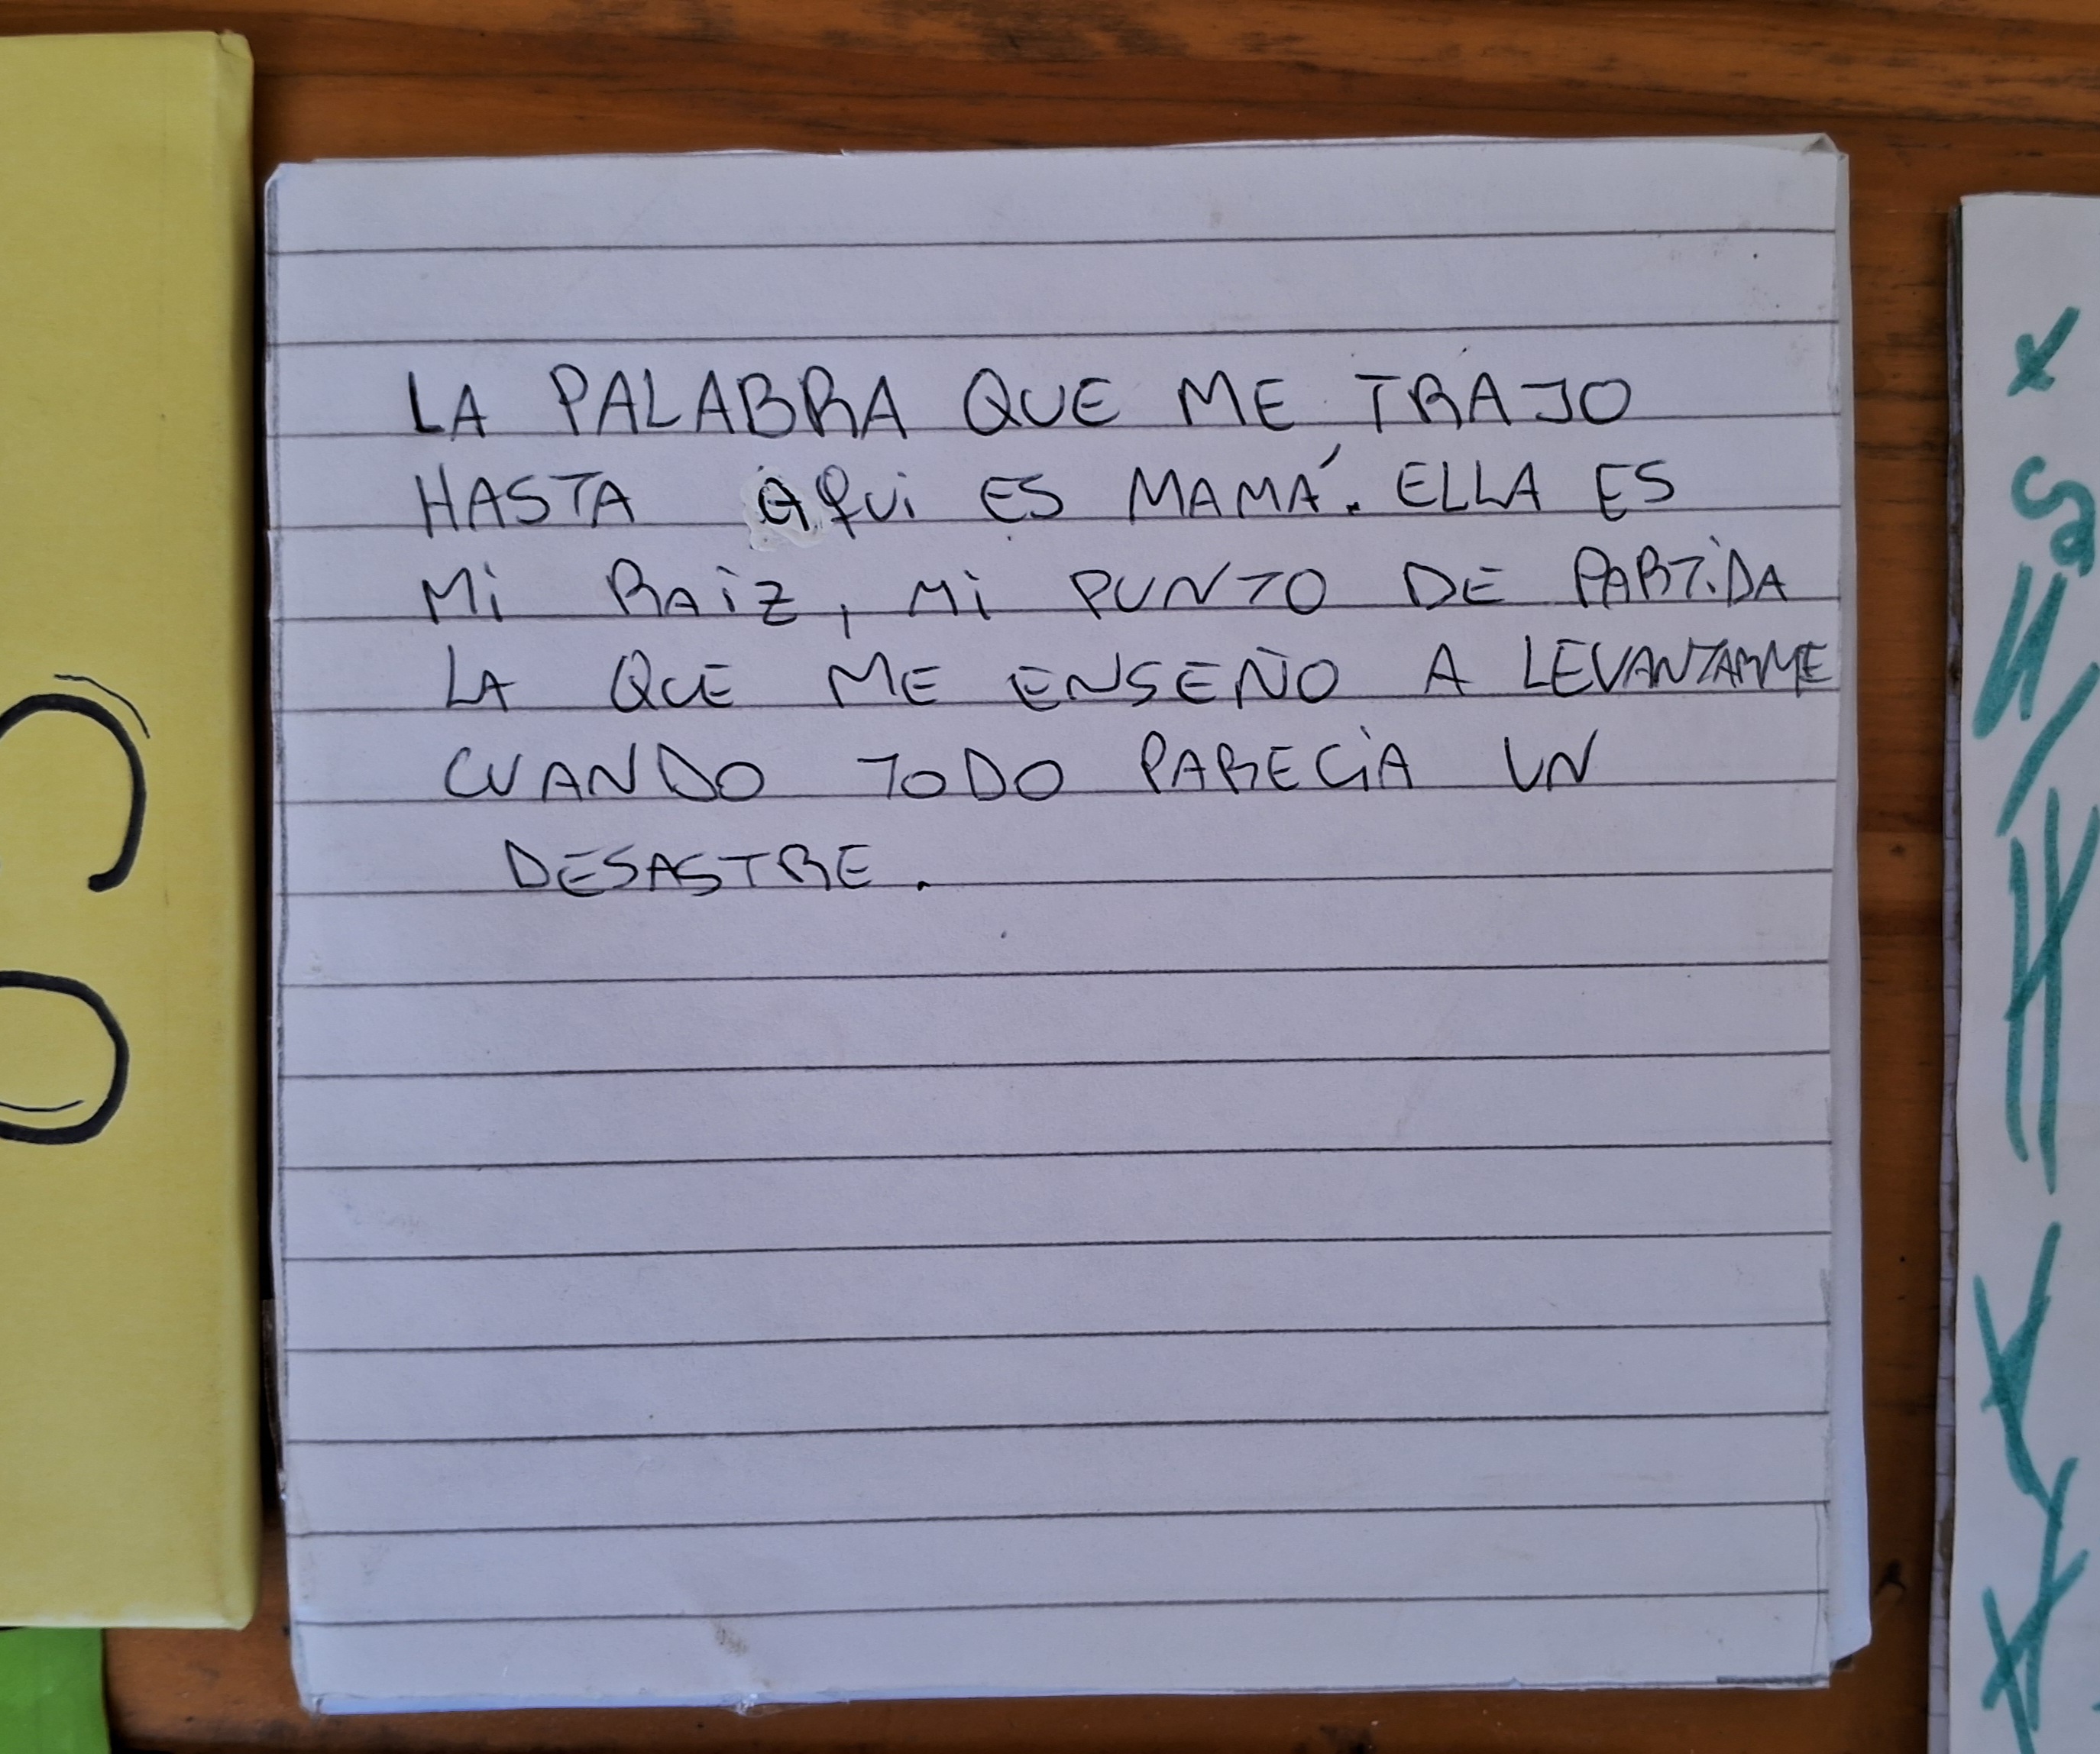 LA PALABRA QUE ME TRAJO
HASTA AQUi ES MAMÁ. ELLA ES
Mi RAiZ, Mi PUNTO DE PARTiDA
LA QUE ME ENSEÑO A LEVANTARME
CUANDO TODO PARECiA UN
DESASTRE.